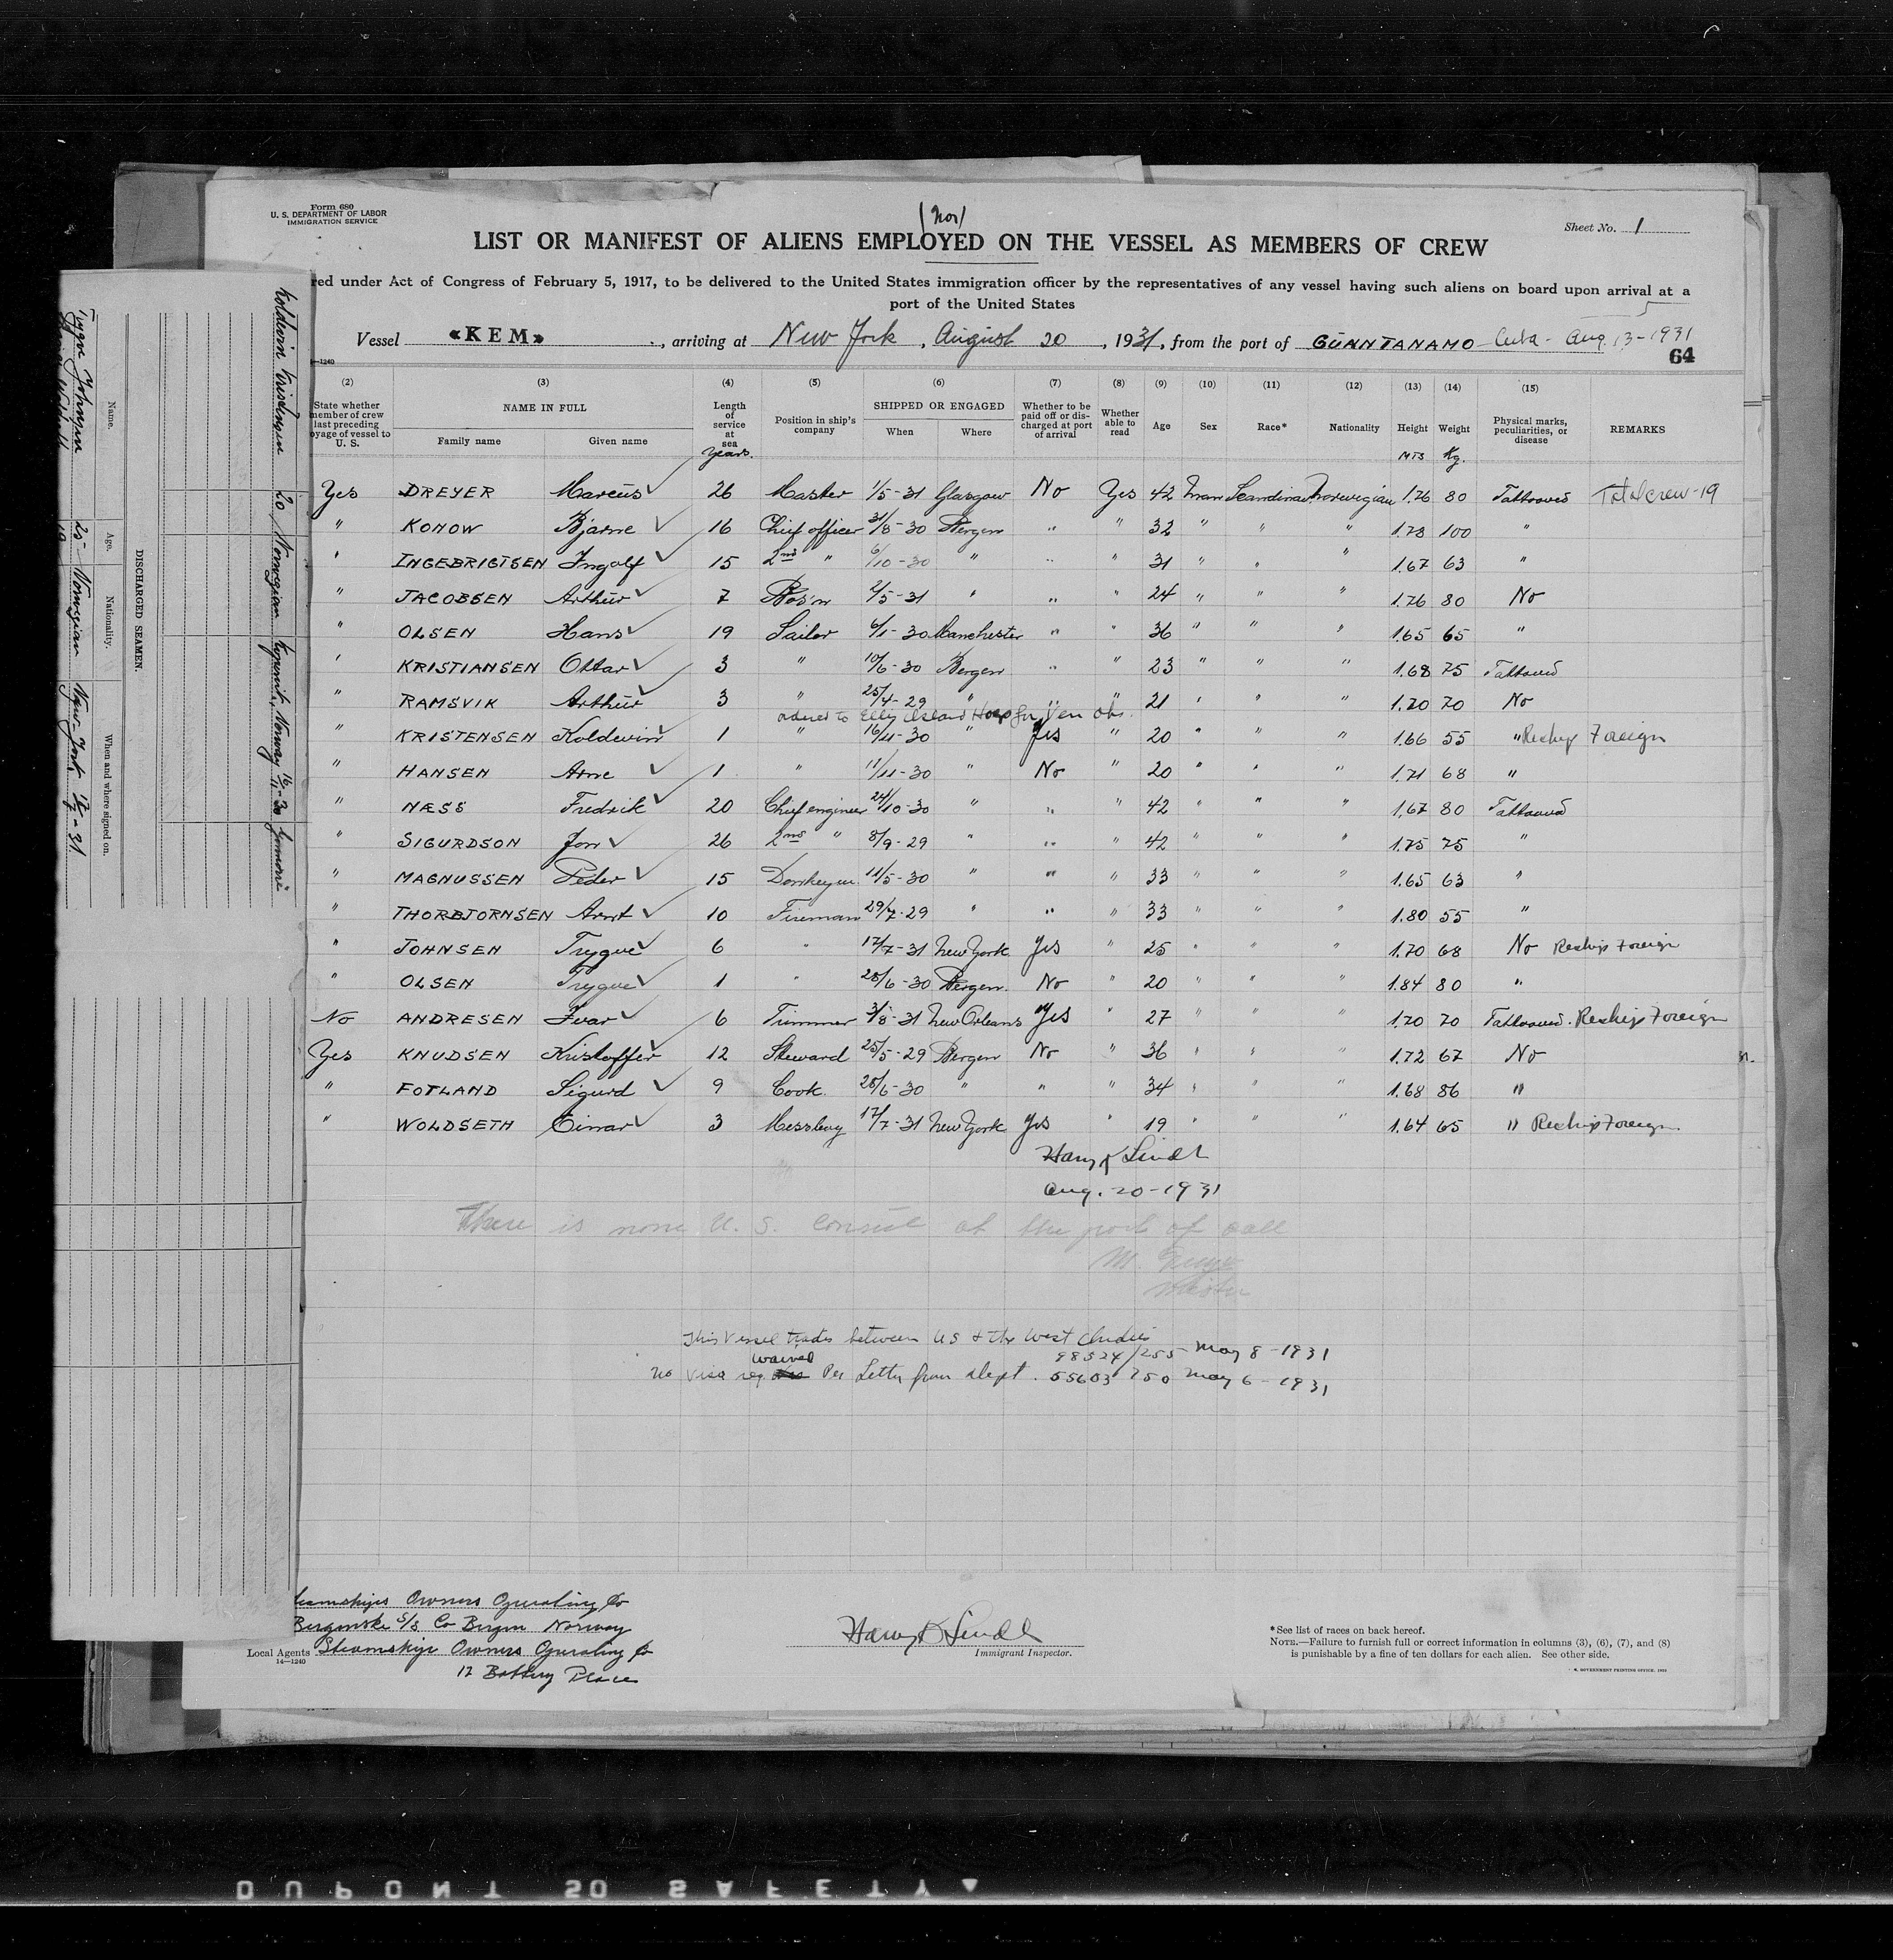 Form 680
U. S. DEPARTMENT OF LABOR
IMMIGRATION SERVICE
(Nor)
Sheet No. 1
LIST OR MANIFEST OF ALIENS EMPLOYED ON THE VESSEL AS MEMBERS OF CREW
red under Act of Congress of February 5, 1917, to be delivered to the United States immigration officer by the representatives of any vessel having such aliens on board upon arrival at a
port of the United States
Vessel «KEM», arriving at New York, August 20, 1931, from the port of GUANTANAMO Cuba - Aug. 13-1931
64
(2) (3) (4) (5) (6) (7) (8) (9) (10) (11) (12) (13) (14) (15)
State whether member of crew last preceding oyage of vessel to U. S. NAME IN FULL Family name Given name Length of service at sea years. Position in ship's company SHIPPED OR ENGAGED When Where Whether to be paid off or discharged at port of arrival Whether able to read Age Sex Race* Nationality Height MTS Weight Kg. Physical marks, peculiarities, or disease REMARKS
Yes DREYER Marcus 26 Master 1/5-31 Glasgow No Yes 42 man Scandinav Norwegian 1.76 80 Tattooed Total crew-19
" KONOW Bjarne 16 Chief officer 31/8-30 Bergen " " 32 " " " 1.78 100 "
" INGEBRIGTSEN Ingolf 15 2nd " 6/10-30 " " " 31 " " " 1.67 63 "
" JACOBSEN Arthur 7 Bos'n 2/5-31 " " " 24 " " " 1.76 80 No
" OLSEN Hans 19 Sailor 6/1-30 Manchester " " 36 " " " 1.65 65 "
" KRISTIANSEN Ottar 3 " 10/6-30 Bergen " " 23 " " " 1.68 75 Tattooed
" RAMSVIK Arthur 3 " 25/4-29 " " " 21 " " " 1.70 70 No
ordered to Ellis Island Hosp for Ven obs.
" KRISTENSEN Koldevin 1 " 16/11-30 " Yes " 20 " " " 1.66 55 " Reship Foreign
" HANSEN Arne 1 " 11/11-30 " No " 20 " " " 1.71 68 "
" NÆSS Fredrik 20 Chief engineer 24/10-30 " " " 42 " " " 1.67 80 Tattooed
" SIGURDSON Jon 26 2nd " 8/9-29 " " " 42 " " " 1.75 75 "
" MAGNUSSEN Peder 15 Donkeym. 11/5-30 " " " 33 " " " 1.65 63 "
" THORBJORNSEN Arnt 10 Fireman 29/7-29 " " " 33 " " " 1.80 55 "
" JOHNSEN Trygve 6 " 17/7-31 New York Yes " 25 " " " 1.70 68 No Reship Foreign
" OLSEN Trygve 1 " 28/6-30 Bergen No " 20 " " " 1.84 80 "
No ANDRESEN Ivar 6 Trimmer 3/8-31 New Orleans Yes " 27 " " " 1.70 70 Tattooed. Reship Foreign
Yes KNUDSEN Kristoffer 12 Steward 25/5-29 Bergen No " 36 " " " 1.72 67 No
" FOTLAND Sigurd 9 Cook 28/6-30 " " " 34 " " " 1.68 86 "
" WOLDSETH Einar 3 Messboy 17/7-31 New York Yes " 19 " " " 1.64 65 " Reship Foreign
Harry K Lindt
Aug. 20-1931
There is none U. S. Consul at the port of call
Master
This vessel trades between US & the West Indies
98524/255 May 8-1931
waived
No Visa req. Per Letter from Dept. 55603/750 May 6-1931
Steamships Owners Operating Co
Bergenske S/S Co Bergen Norway
Local Agents Steamship Owners Operating Co
14—1240
17 Battery Place
Harry K Lindt
Immigrant Inspector.
*See list of races on back hereof.
NOTE.—Failure to furnish full or correct information in columns (3), (6), (7), and (8)
is punishable by a fine of ten dollars for each alien. See other side.
U. S. GOVERNMENT PRINTING OFFICE
DISCHARGED SEAMEN.
Name. Age. Nationality. When and where signed on.
Trygve Johnsen 25 Norwegian New-York 17/7-31
Koldevin Kristensen 20 Norwegian Norway 16/11-30
DUPONT SO SAFETY